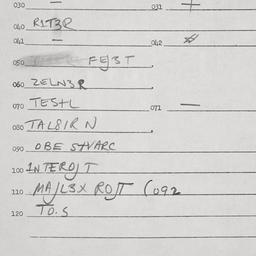 030 — 031 +
040 R1T3R
041 — 042 #
050 FEJ3T
060 ZELN3R
070 TEStL 071 —
080 TAL8IR N
090 OBE StVARC
100 INTEROJT
110 MAJL3X ROJT (092
120 TO.S